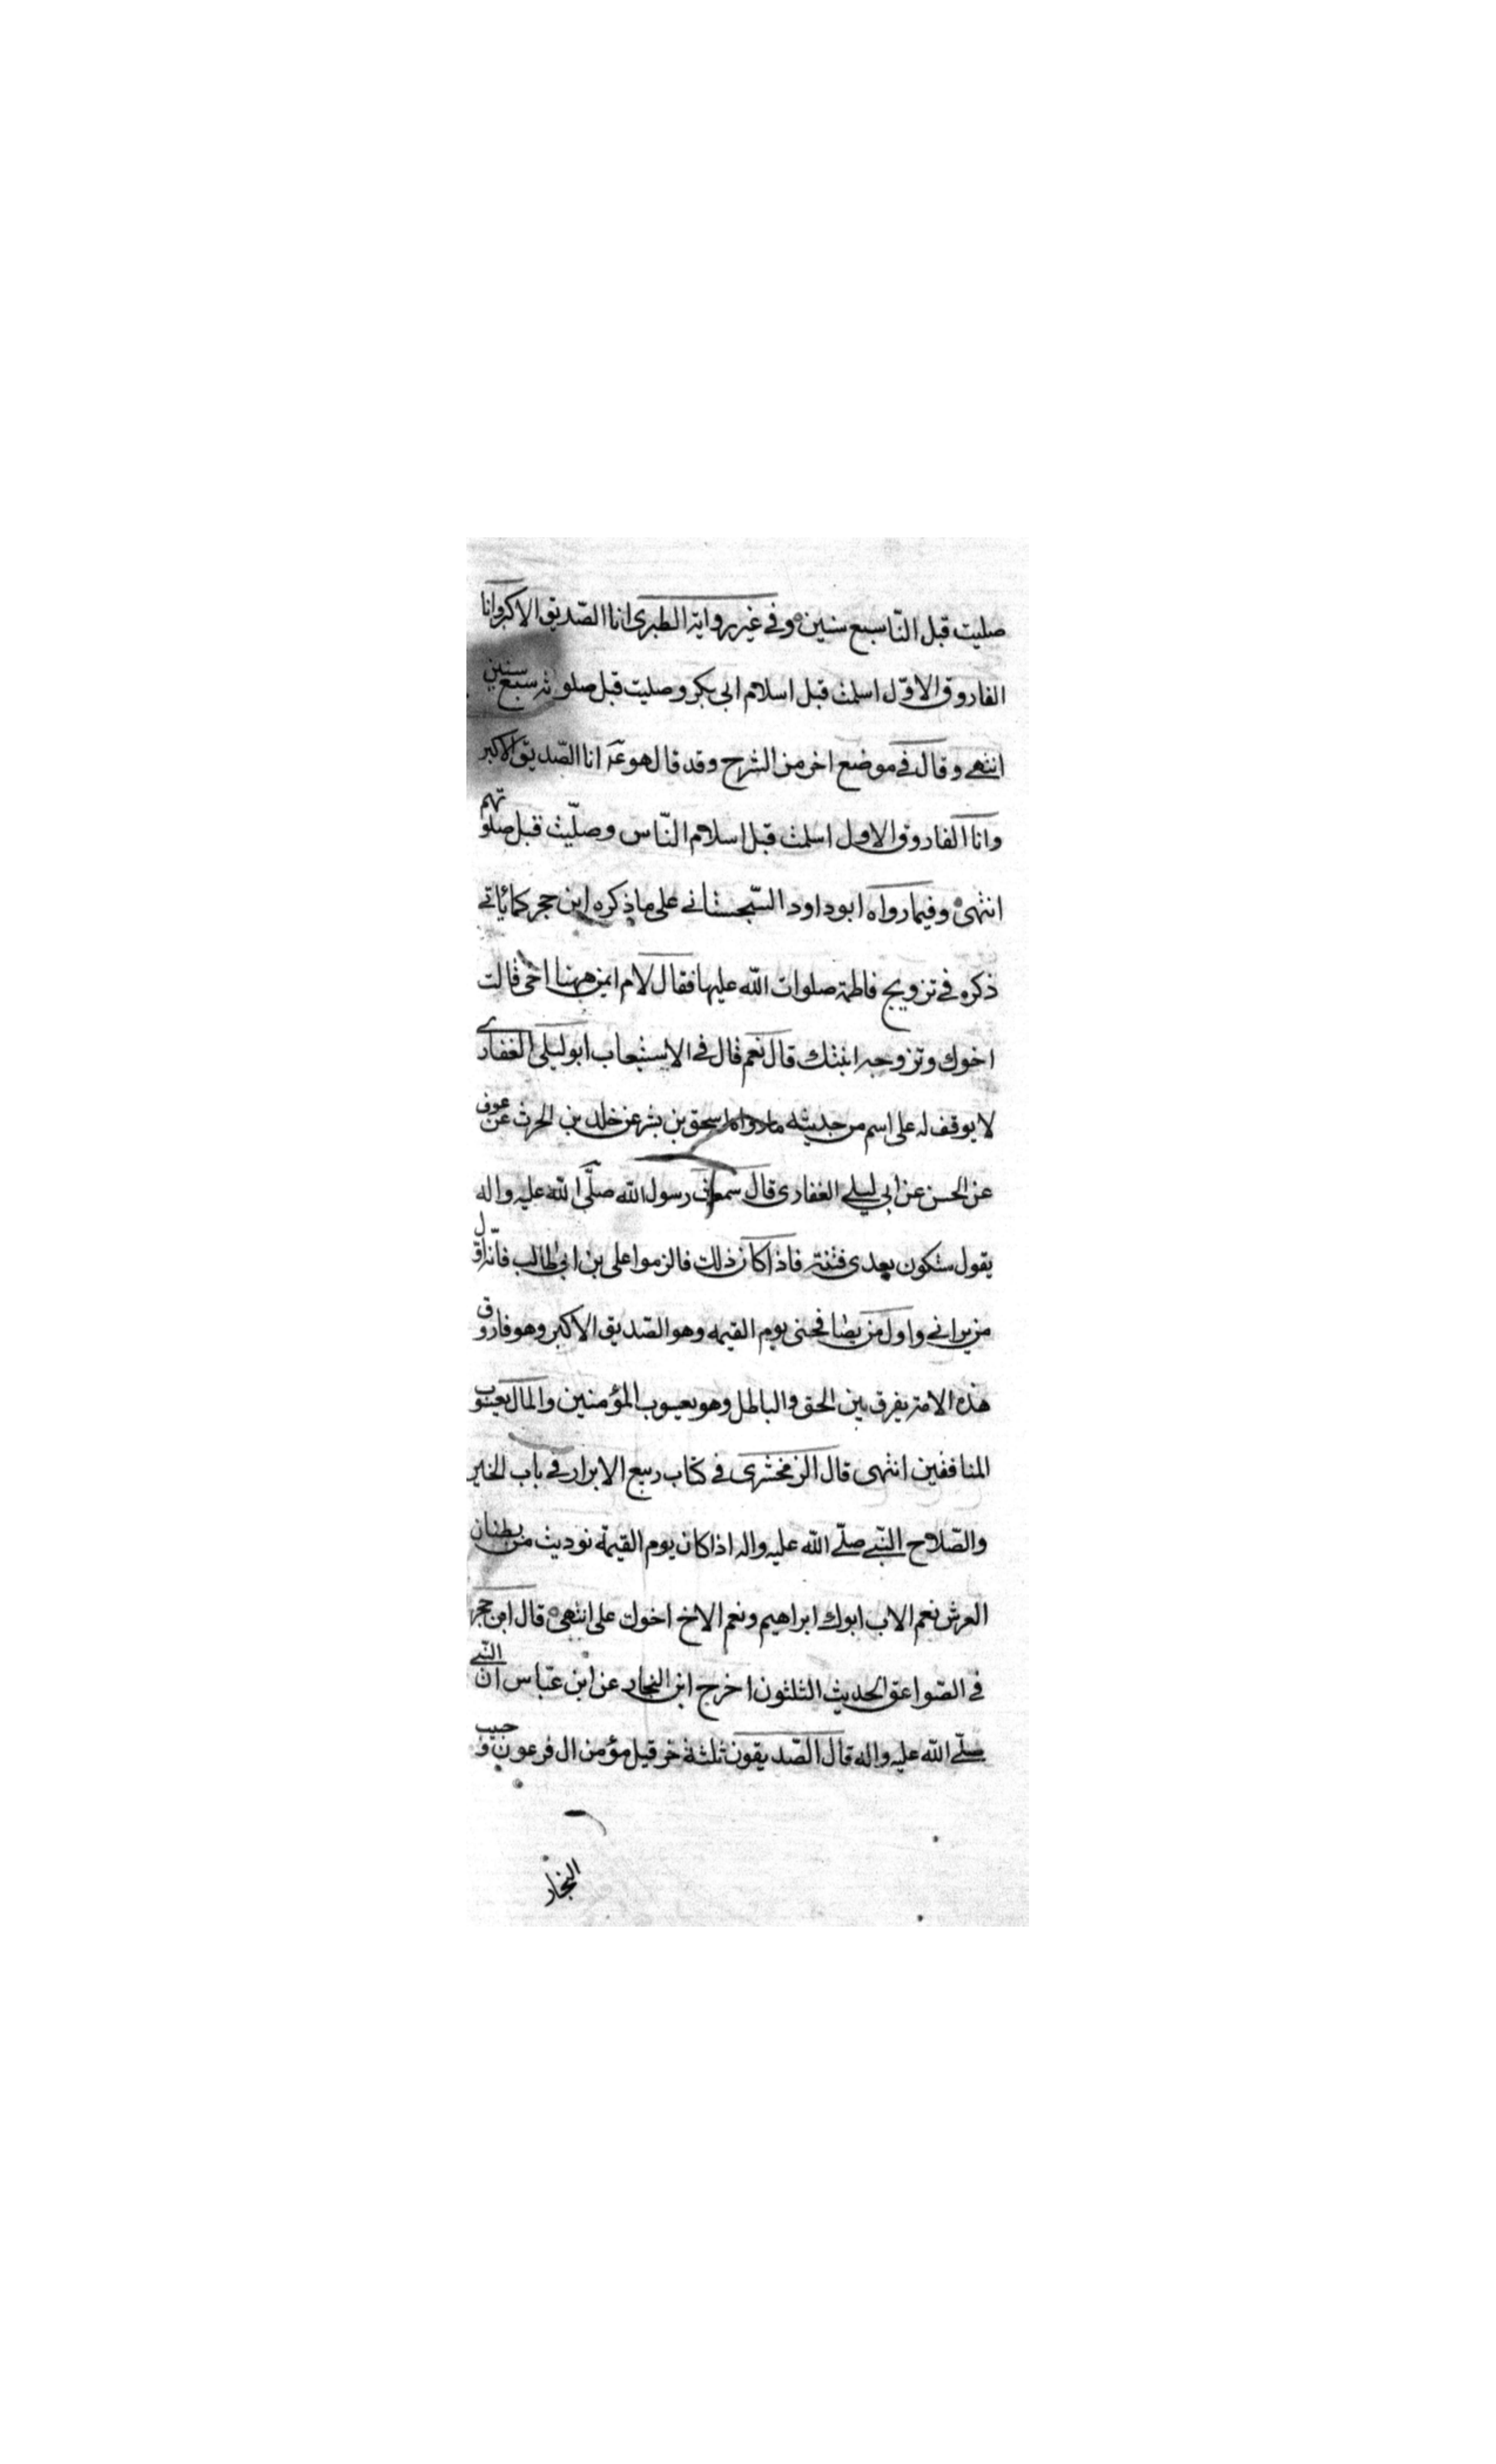 صليت قبل النّاسبع سنين وفي غير رواية الطبرى انا الصّديق الاكبر وانا
الفاروق الاوّل اسلمت قبل اسلام ابى بكر وصليت قبل صلوته سبع سنين
انتهى وقال في موضع اخر من الشرح وقد قال هو عَ انا الصّديق الاكبر
وانا الفاروق الاول اسلمت قبل اسلام النّاس وصلّيت قبل صلوتهم
انتهى وفيما رواه ابو داود السّجستانى على ما ذكره ابن حجر كما ياتى
ذكره في تزويج فاطمة صلوات اللّه عليها فقال لام ايمن ههنا اخى قالت
اخوك وتزوجه ابنتك قال نعم قال في الاستيعاب ابو ليلى الغفارى
لا يوقف له على اسم من حديثه ما رواه اسحق بن بشر عن خالد بن الحرث عن عوف
عن الحسن عن ابي ليلى الغفارى قال سمعت رسول اللّه صلّى اللّه عليه واله
يقول ستكون بعدى فتنة فاذا كان ذلك فالزموا على بن ابي طالب فانّه اوّل
من يرانى واول من يصافحنى يوم القيمه وهو الصّديق الاكبر وهو فاروق
هذه الامة يفرق بين الحق والباطل وهو يعسوب المؤمنين والمال يعسوب
المنافقين انتهى قال الزمخشرى في كتاب ربيع الابرار في باب الخير
والصّلاح النّبى صلّى اللّه عليه واله اذا كان يوم القيمة نوديت من بطنان
العرش نعم الاب ابوك ابراهيم ونعم الاخ اخوك على انتهى قال ابن حجر
في الصّواعق الحديث الثلثون اخرج ابن النجار عن ابن عبّاس انّ النّبى
صلّى اللّه عليه واله قال الصّديقون ثلثة خرقيل مؤمن ال فرعون و حبيب
النجار